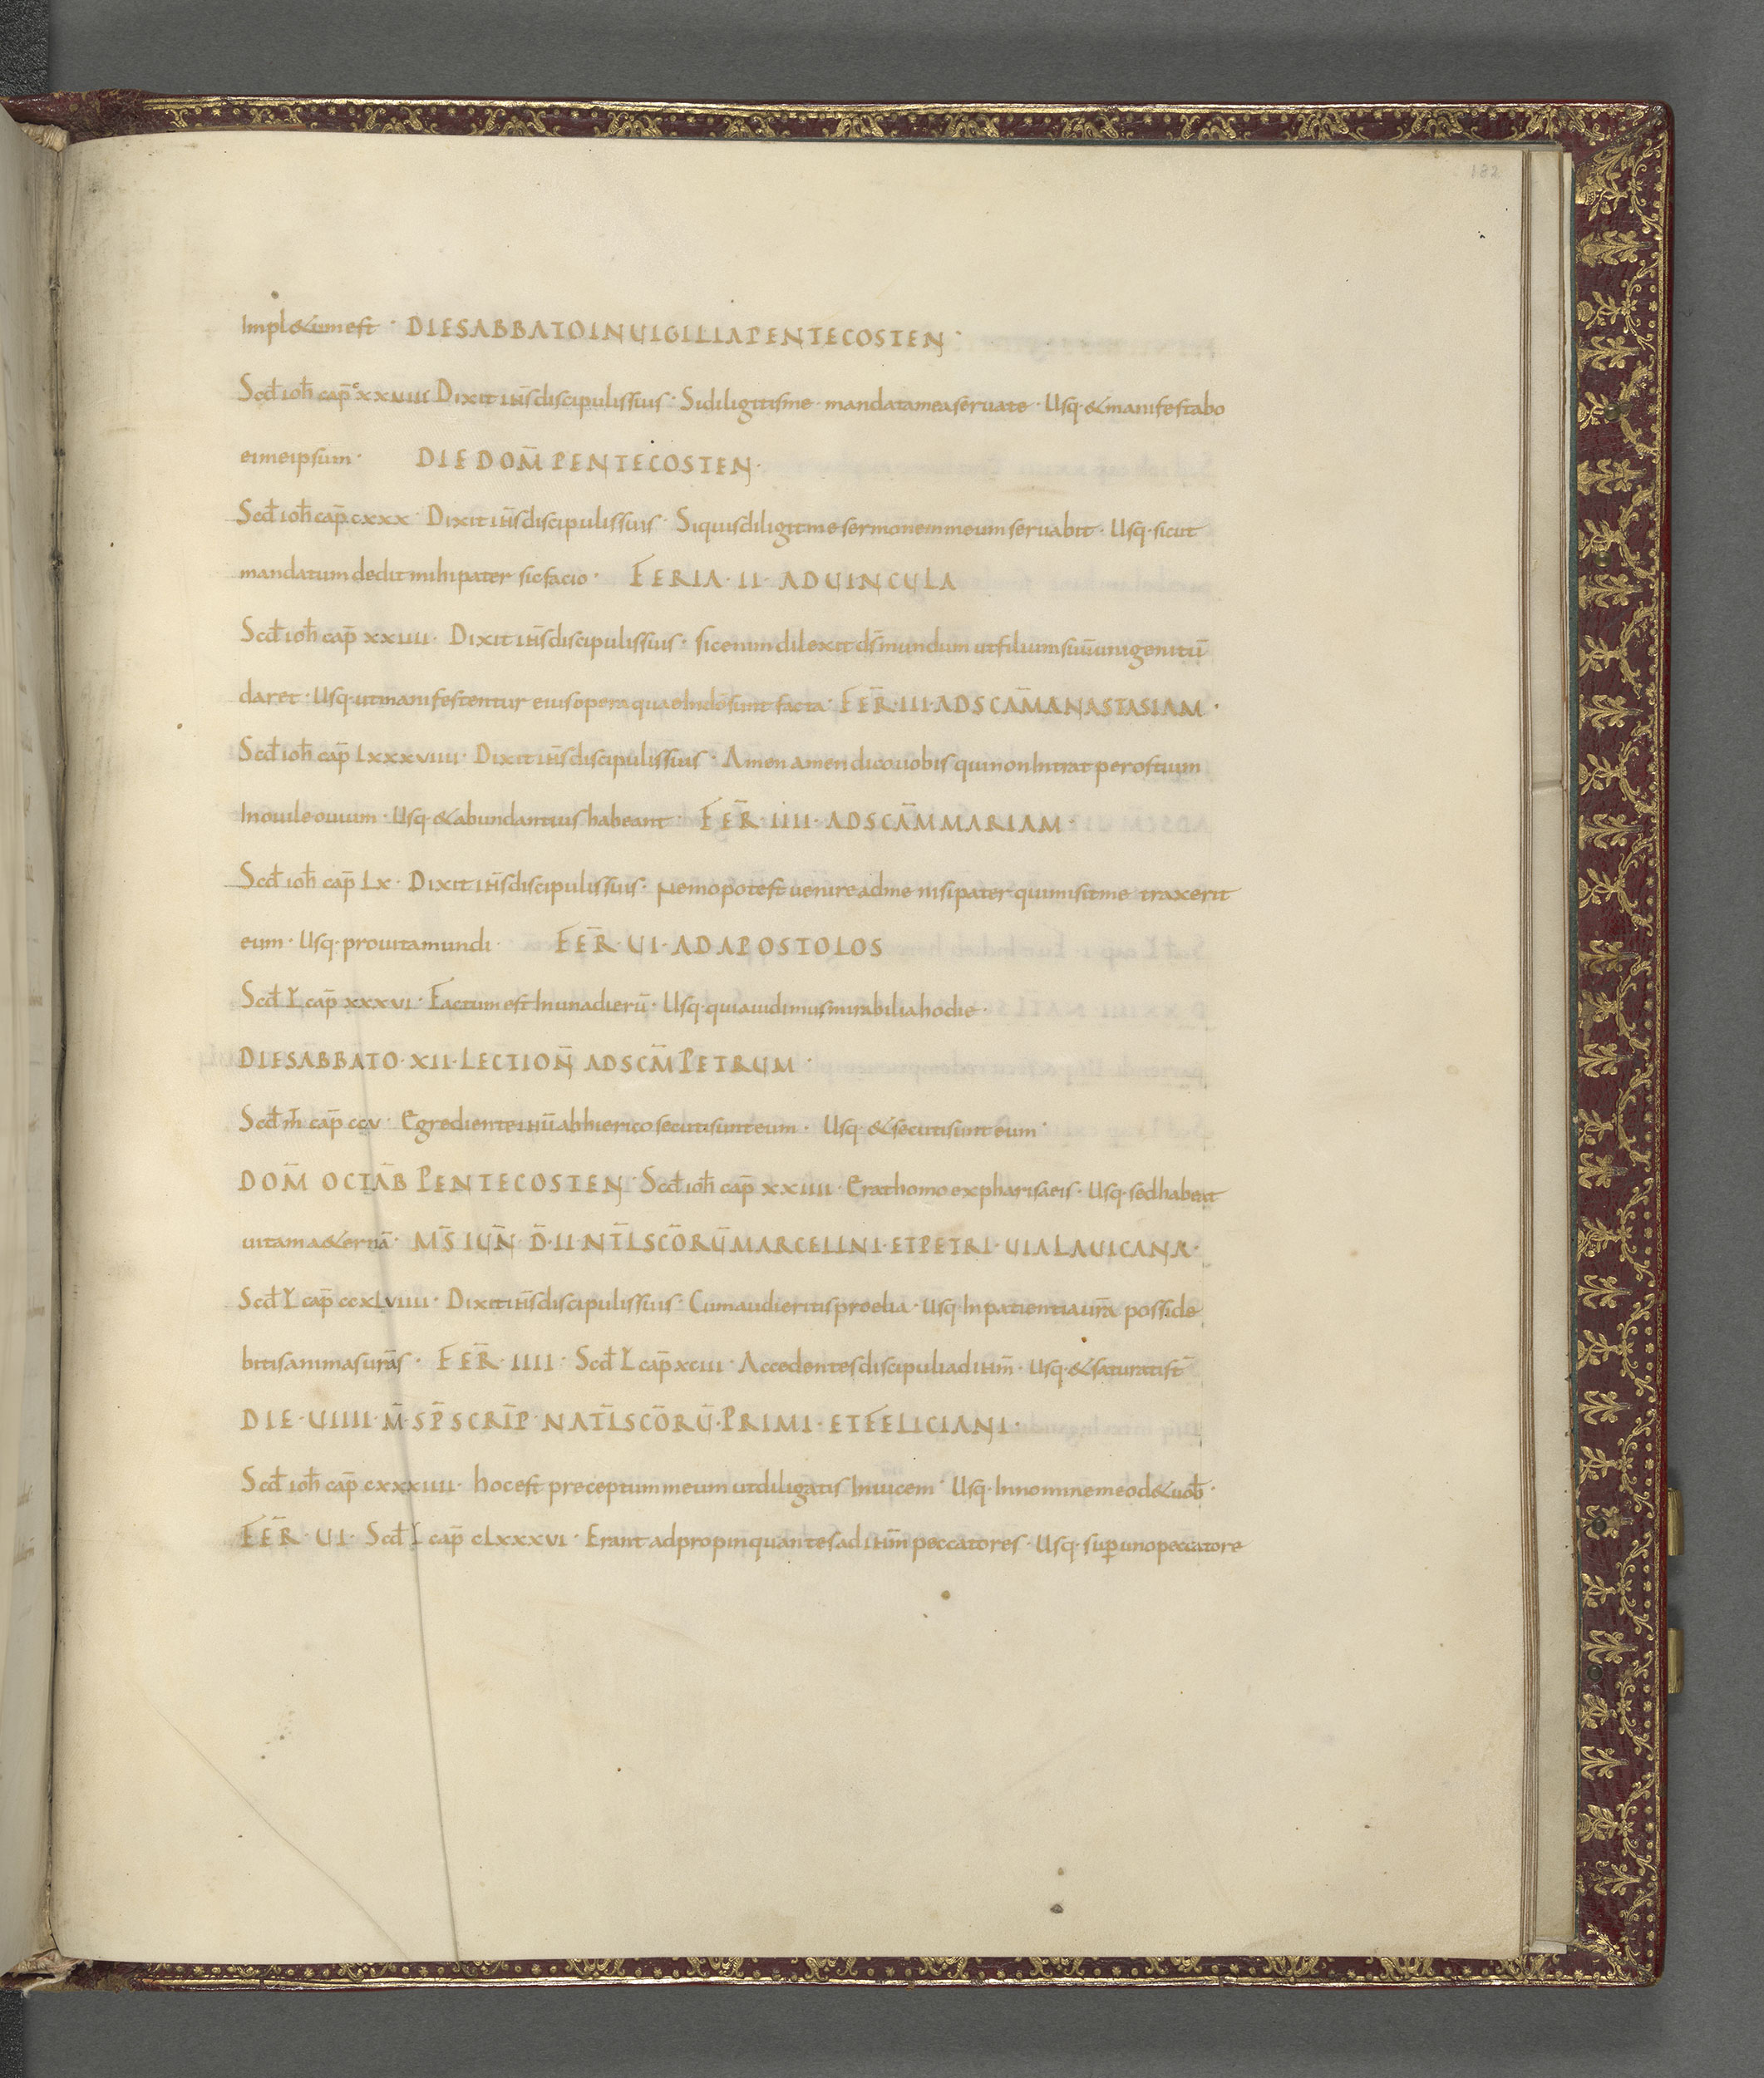 182
Impl&um est · DIE SABBATO IN UIGILIA PENTECOSTEN ·
Scd̄ ioh̄ cap̄ cxxuiiii Dixit ih̄s discipulis suis · Si diligitis me mandata mea seruate · Usq· & manifestabo
ei me ipsum · DIE DOM̄ PENTECOSTEN ·
Scd̄ ioh̄ cap̄ cxxx · Dixit ih̄s discipulis suis · Si quis diligit me sermonem meum seruabit · Usq· sicut
mandatum dedit mihi pater sic facio · FERIA · II · AD UINCULA
Scd̄ ioh̄ cap̄ xxiiii · Dixit ih̄s discipulis suis · sic enim dilexit ds̄ mundum ut filium suū unigenitū
daret · Usq· ut manifestentur eius opera quae In dō sunt facta · FER̄ · III · AD SCAM̄ ANASTASIAM ·
Scd̄ ioh̄ cap̄ Lxxxviiii · Dixit ih̄s discipulis suis · Amen amen dico uobis qui non Intrat per ostium
In ouile ouium · Usq· & abundantius habeant · FER̄ · IIII · AD SCAM̄ MARIAM ·
Scd̄ ioh̄ cap̄ Lx · Dixit ih̄s discipulis suis · Nemo potest uenire ad me nisi pater qui misit me traxerit
eum · Usq· pro uita mundi · FER̄ · UI · AD APOSTOLOS
Scd̄ L cap̄ xxxvi · Factum est In una dierū · Usq· quia uidimus mirabilia hodie ·
DIE SABBATO · XII · LECTION̄ AD SCM̄ PETRUM ·
Scd̄ m̄ cap̄ ccv · Egrediente ihū ab hierico secuti sunt eum · Usq· & secuti sunt eum ·
DOM̄ OCTAB̄ PENTECOSTEN · Scd̄ ioh̄ cap̄ xxiiii · Erat homo ex pharisaeis · Usq· sed habeat
uitam a&ernā · MS̄ IUN̄ · D̄ · II · NTL̄ SCŌRŪ MARCELINI · ET PETRI · UIA LAUICANA ·
Scd̄ L cap̄ ccxLviiii · Dixit ih̄s discipulis suis · Cum audieritis proelia · Usq· In patientia ur̄a posside
bitis animas ur̄as · FER̄ · IIII · Scd̄ L cap̄ xciii · Accedentes discipuli ad ihm̄ · Usq· & saturati st̄
DIE · UIIII · M̄ · SP̄SCRIP̄ · NATL̄ SCŌRŪ · PRIMI · ET FELICIANI ·
Scd̄ ioh̄ cap̄ cxxxiiii · hoc est preceptum meum ut diligatis Inuicem · Usq· In nomine meo d& uob̄ ·
FER̄ · UI · Scd̄ L cap̄ cLxxxvi · Erant adpropinquantes ad ihm̄ peccatores · Usq· sup̄ uno peccatore